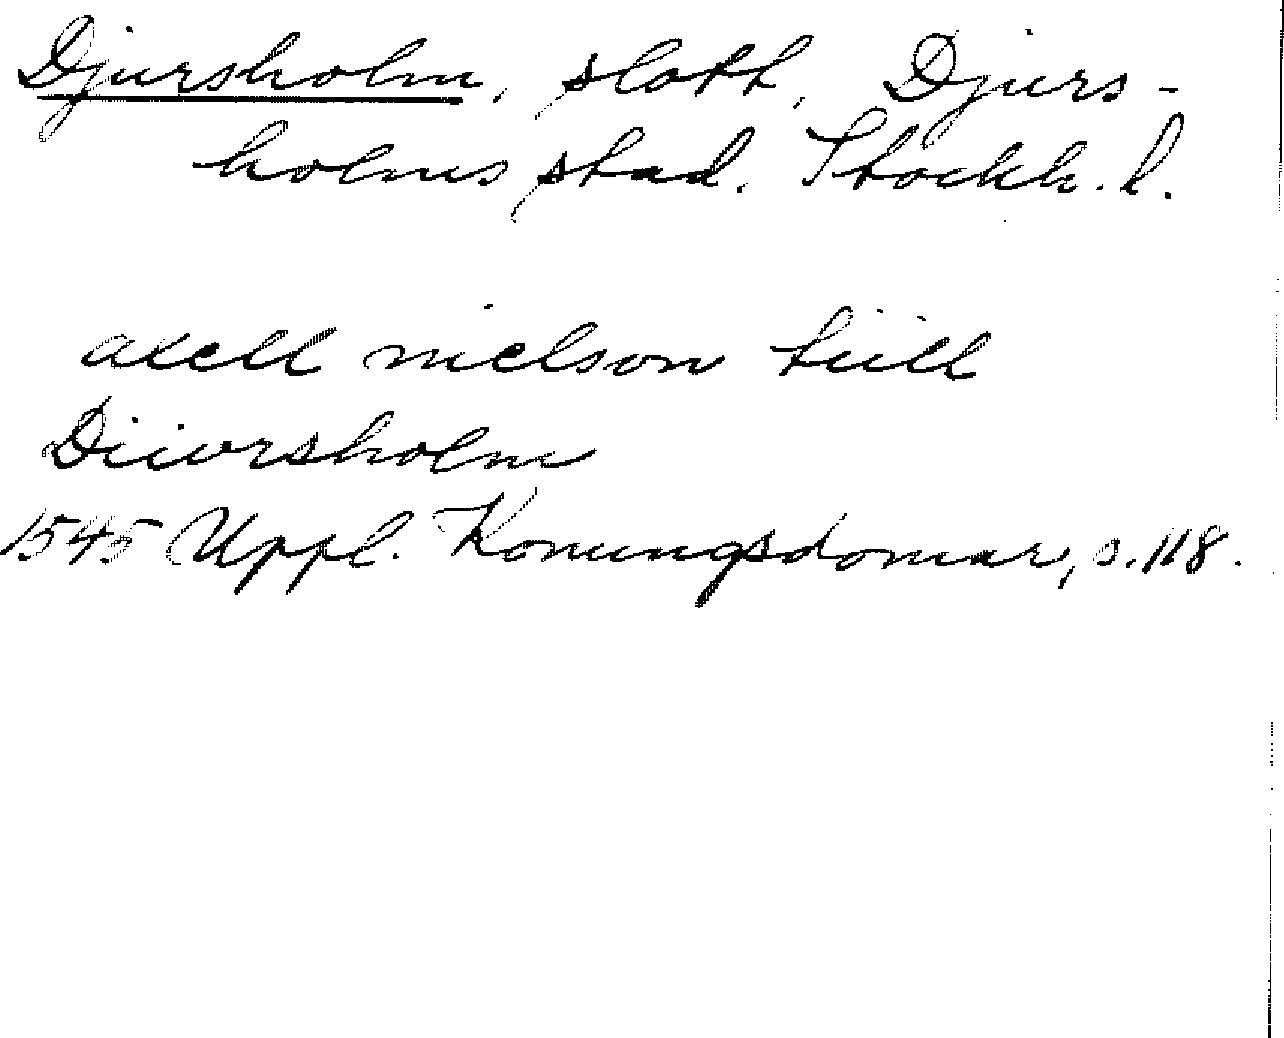 Djursholm, slott, Djurs-
holms stad. Stockh. l.
axell nielson tiill
Diiwrsholm
1545 Uppl. Konungsdomar, s. 118.